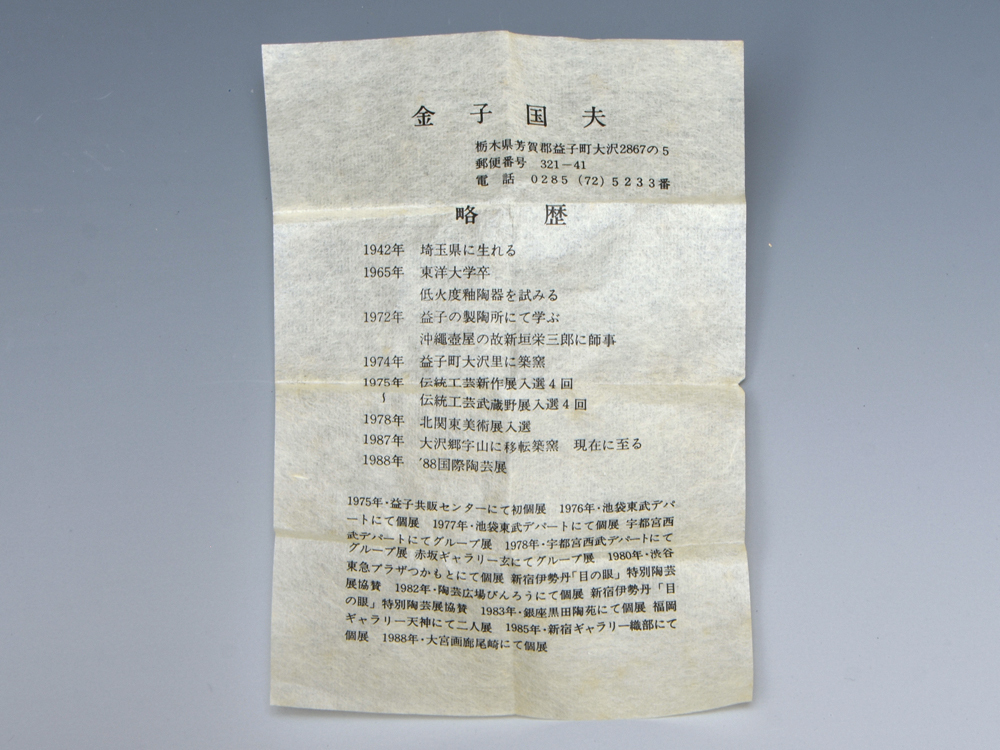 金子国夫
栃木県芳賀郡益子町大沢2867の5
郵便番号 321-41
電話 0285(72)5233番
略歴
1942年 埼玉県に生れる
1965年 東洋大学卒
低火度釉陶器を試みる
1972年 益子の製陶所にて学ぶ
沖縄壺屋の故新垣栄三郎に師事
1974年 益子町大沢里に築窯
1975年 伝統工芸新作展入選4回
〜 伝統工芸武蔵野展入選4回
1978年 北関東美術展入選
1987年 大沢郷字山に移転築窯 現在に至る
1988年 '88国際陶芸展
1975年・益子共販センターにて初個展 1976年・池袋東武デパ
ートにて個展 1977年・池袋東武デパートにて個展 宇都宮西
武デパートにてグループ展 1978年・宇都宮西武デパートにて
グループ展 赤坂ギャラリー玄にてグループ展 1980年・渋谷
東急プラザつかもとにて個展 新宿伊勢丹「目の眼」特別陶芸
展協賛 1982年・陶芸広場びんろうにて個展 新宿伊勢丹「目
の眼」特別陶芸展協賛 1983年・銀座黒田陶苑にて個展 福岡
ギャラリー天神にて二人展 1985年・新宿ギャラリー織部にて
個展 1988年・大宮画廊尾崎にて個展